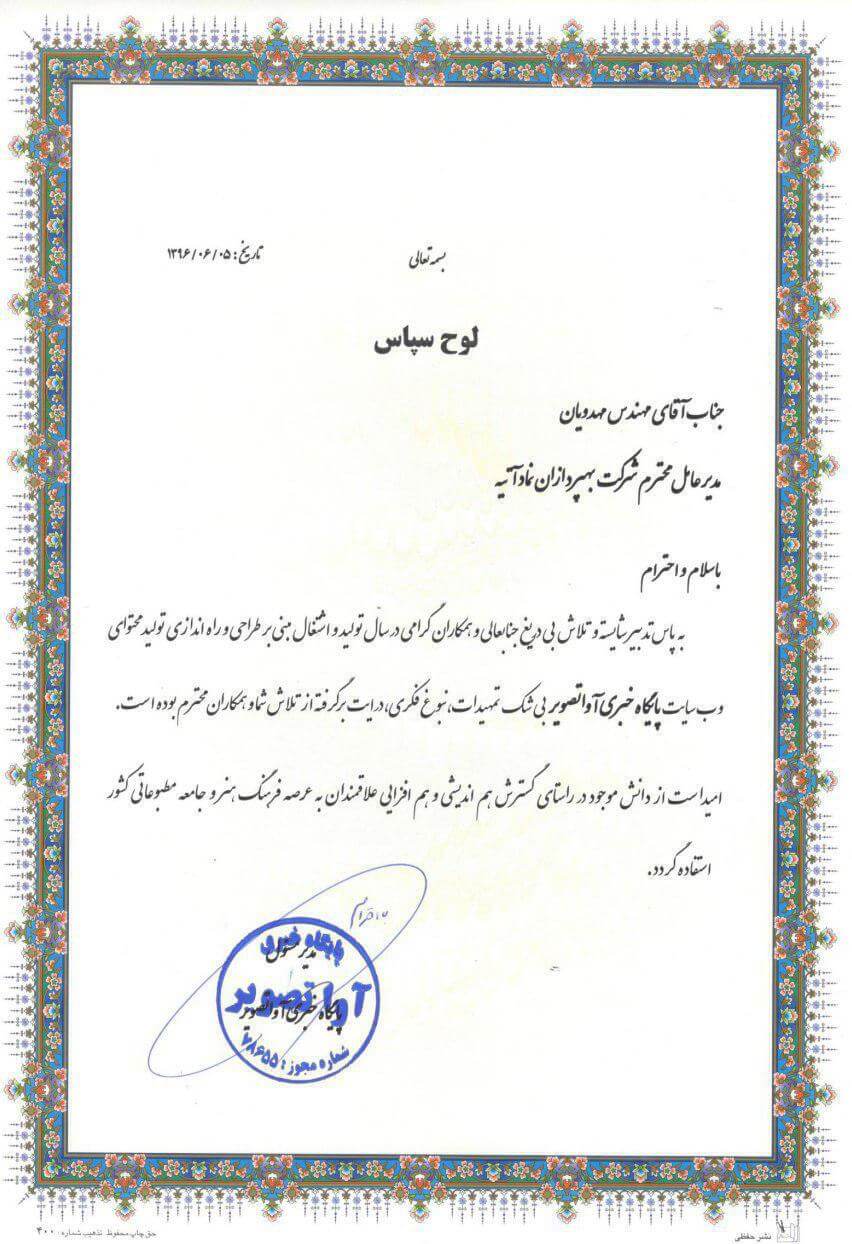 بسمه تعالی
تاریخ: ۱۳۹۶/۰۶/۰۵
لوح سپاس
جناب آقای مهندس مهدویان
مدیرعامل محترم شرکت بهپردازان نماد آتیه
باسلام و احترام
به پاس تدبیر شایسته و تلاش بی دریغ جنابعالی و همکاران گرامی در سال تولید و اشتغال مبنی بر طراحی و راه اندازی تولید محتوای
وب سایت پایگاه خبری آوا تصویر بی شک تمهیدات، نبوغ فکری، درایت برگرفته از تلاش شما و همکاران محترم بوده است.
امید است از دانش موجود در راستای گسترش هم اندیشی و هم افزایی علاقمندان به عرصه فرهنگ هنر و جامعه مطبوعاتی کشور
استفاده گردد.
با احترام
پایگاه خبری
مدیر مسئول
آوا تصویر
پایگاه خبری آوا تصویر
شماره مجوز: ۷۸۶۵۵
نشر حفظی
حق چاپ محفوظ تذهیب شماره: ۴۰۰